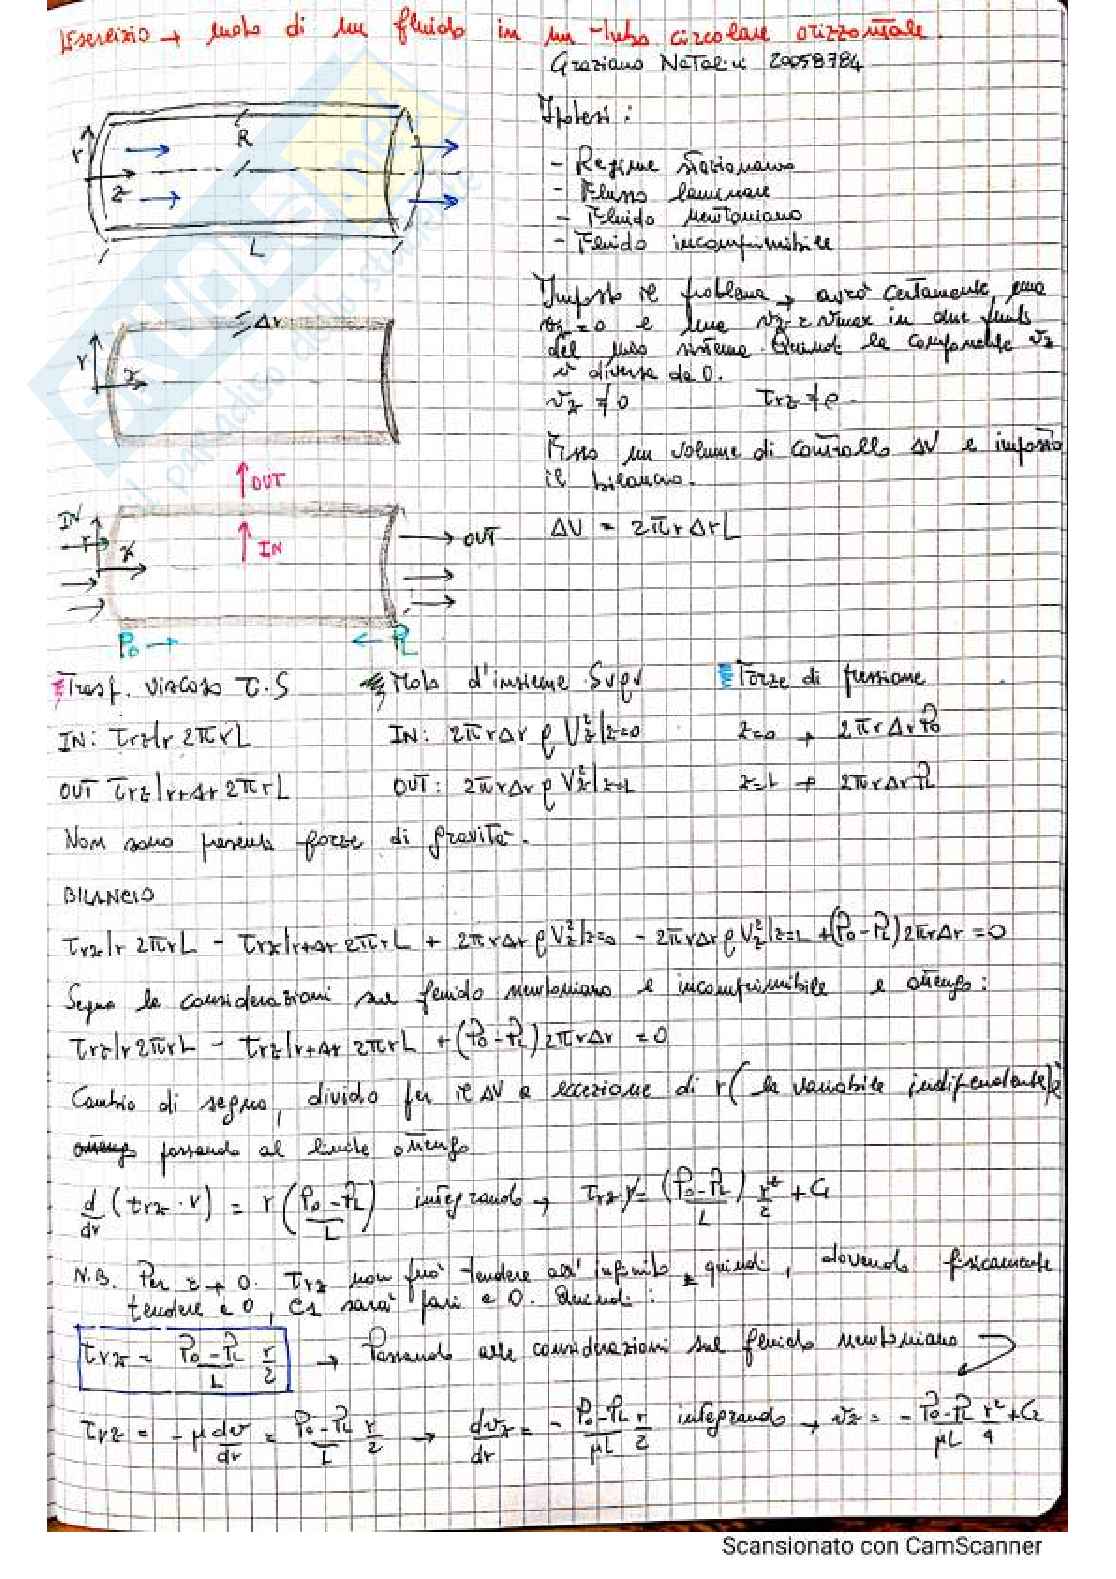 Esercizio → moto di un fluido in un tubo circolare orizzontale.
Graziano Natalini 20058784
r
R
z
L
Ipotesi:
- Regime stazionario
- Flusso laminare
- Fluido newtoniano
- Fluido incomprimibile
Imposto il problema → avrò certamente una
vz=0 e una vz=vmax in due punti
del mio sistema. Quindi la componente vz
è diversa da 0.
vz ≠ 0 τrz ≠ 0
Δr
r
z
Fisso un volume di controllo ΔV e imposto
il bilancio.
ΔV = 2πrΔrL
OUT
IN
IN
r
z
OUT
P0 → ← PL
Trasp. viscoso τ.S
Moto d'insieme Sρv
Forze di pressione
IN: τrz|r 2πrL IN: 2πrΔr ρ Vz²|z=0 z=0 → 2πrΔrP0
OUT τrz|r+Δr 2πrL OUT: 2πrΔr ρ Vz²|z=L z=L → 2πrΔrPL
Non sono presenti forze di gravità.
BILANCIO
τrz|r 2πrL - τrz|r+Δr 2πrL + 2πrΔr ρ Vz²|z=0 - 2πrΔr ρ Vz²|z=L + (P0-PL)2πrΔr = 0
Seguo le considerazioni sul fluido newtoniano e incomprimibile e ottengo:
τrz|r 2πrL - τrz|r+Δr 2πrL + (P0-PL)2πrΔr = 0
Cambio di segno, divido per il ΔV a eccezione di r (la variabile indipendente) e
passando al limite ottengo
d/dr (τrz · r) = r (P0-PL / L) integrando → τrz r = (P0-PL)/L r²/2 + C1
N.B. Per r → 0 τrz non può tendere all'infinito, quindi, dovendo fisicamente
tendere a 0, C1 sarà pari a 0. Quindi:
τrz = P0-PL / L r/2 → Passando alle considerazioni sul fluido newtoniano
τrz = -μ dv/dr = P0-PL / L r/2 → dvz/dr = - P0-PL / μL r/2 integrando → vz = - P0-PL / μL r²/4 + C2
Scansionato con CamScanner